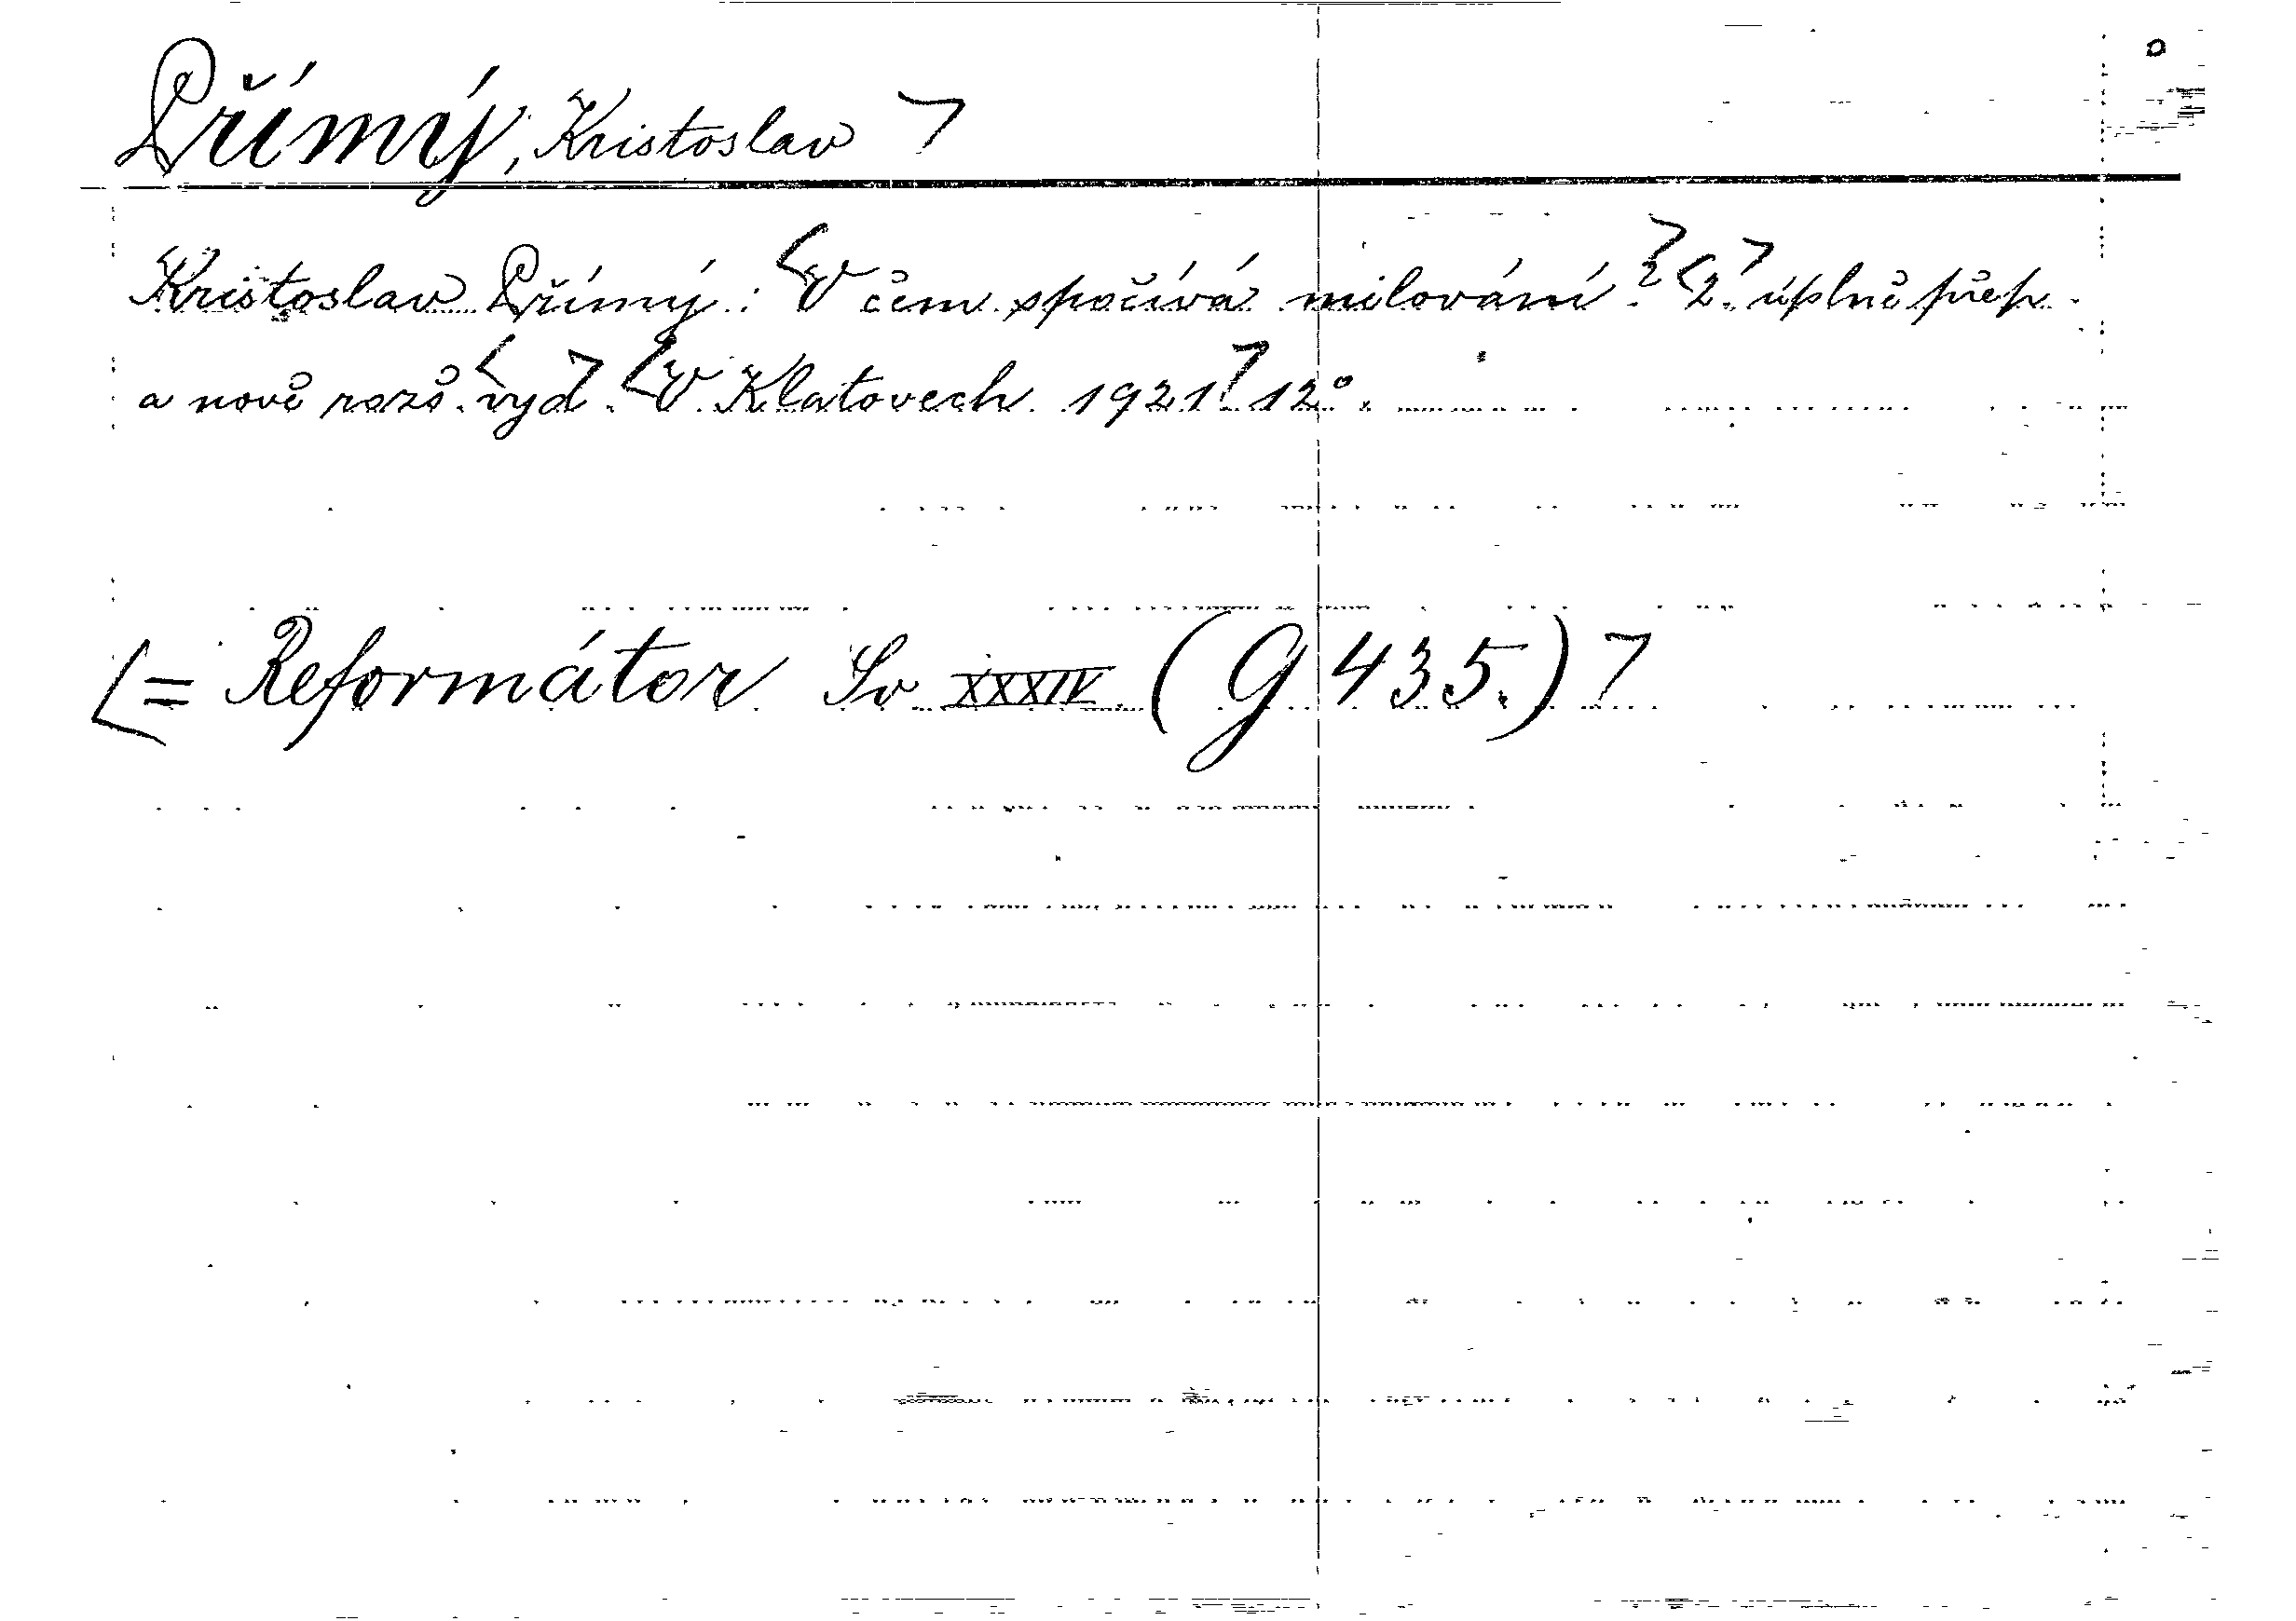 Přímý, Kristoslav
Kristoslav Přímý: V čem spočívá milování? 2. úplně přep.
a nově rozš. vyd. V Klatovech 1921. 12°.
= Reformátor Sv XXXIV (G 435.)